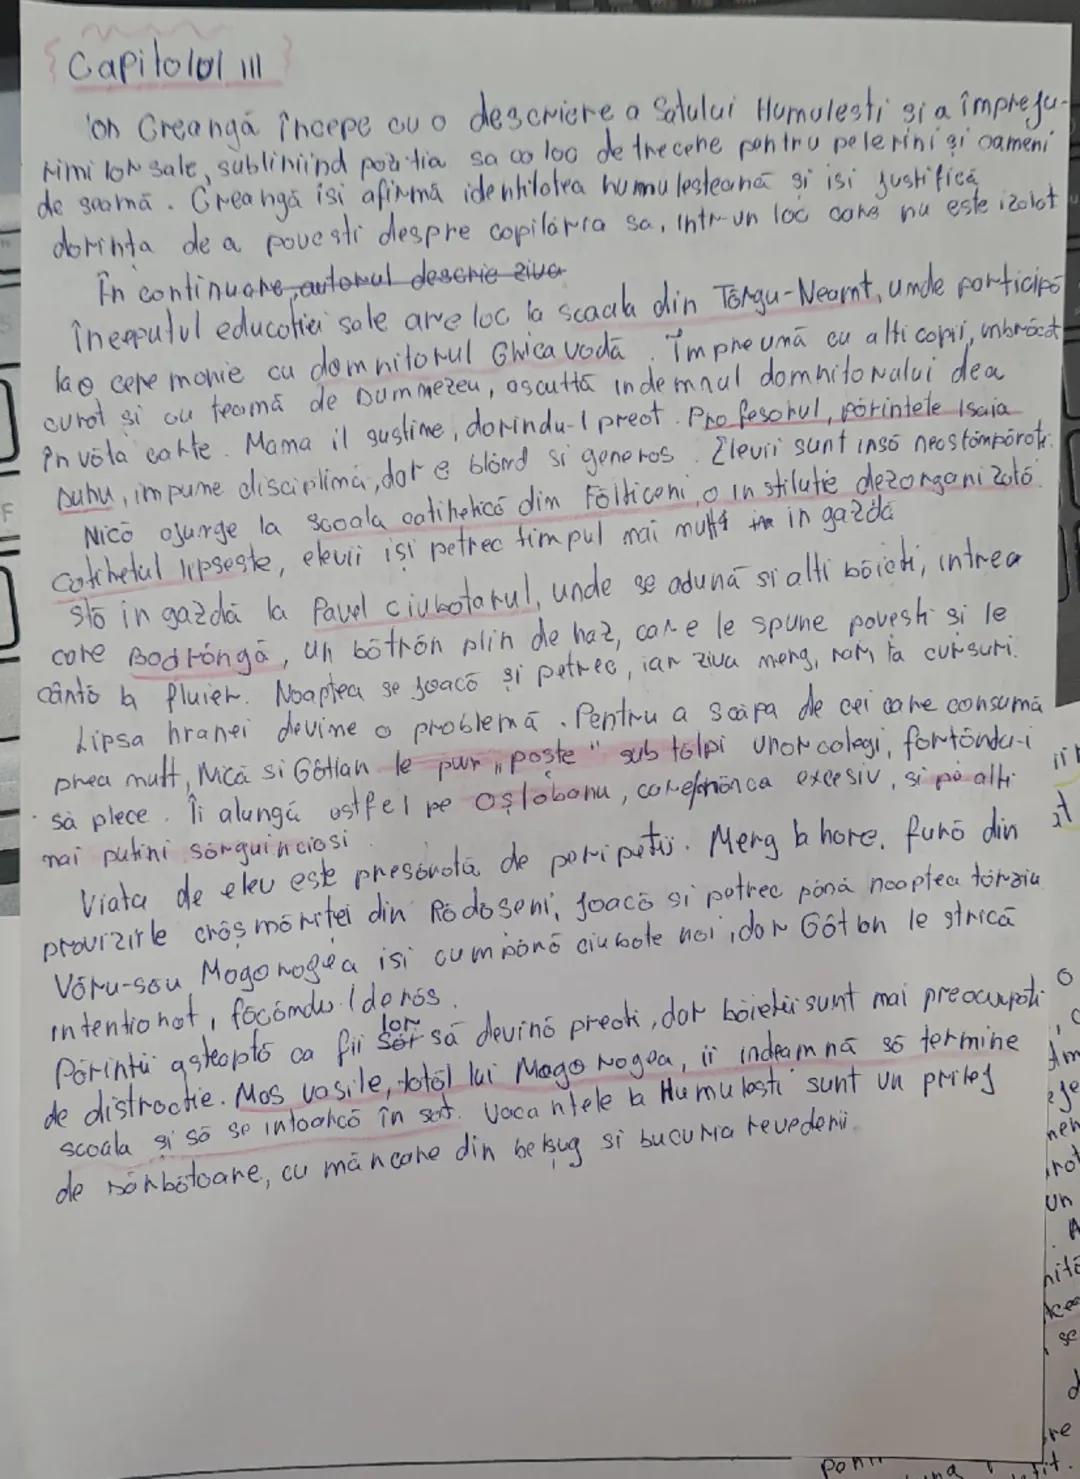 Capitolul III
Ion Creangă începe cu o descriere a Satului Humulesti și a împreju-
rimilor sale, subliniind pozitia sa ca loc de trecere pentru pelerini și oameni
de seamă. Creangă isi afirmă identitatea humulesteană și isi justifică
dorinta de a povesti despre copilăria sa, intr-un loc care nu este izolat
În continuare, autorul descrie ziua
Începutul educatiei sale are loc la scoala din Târgu-Neamt, unde participă
la o ceremonie cu domnitorul Ghica vodă. Împreună cu alti copii, imbrăcat
curat si cu teamă de Dumnezeu, ascultă indemnul domnitorului de a
învăta carte. Mama il sustine, dorindu-l preot. Profesorul, părintele Isaia
Duhu, impune disciplină, dar e blând si generos. Elevii sunt insă neastâmpărati.
Nică ajunge la scoala catihetică din Fălticeni, o institutie dezorganizată.
Catihetul lipseste, elevii iși petrec timpul mai mult in gazdă
stă in gazdă la Pavel ciubotarul, unde se adună si alti băieti, intre a
care Bodrângă, un bătrân plin de haz, care le spune povesti si le
cântă la fluier. Noaptea se joacă și petrec, iar ziua merg, rar, la cursuri.
Lipsa hranei devine o problemă. Pentru a scăpa de cei care consumă
prea mult, Nică si Gâtlan le pun "poste" sub tălpi unor colegi, fortându-i
să plece. Îi alungă astfel pe Oșlobanu, care mănca excesiv, si pe alti
mai putini sârguinciosi
Viata de elev este presărată de peripetii. Merg la hore, fură din
proviziile crâșmăritei din Rădăseni, joacă si petrec până noaptea târziu
Văru-său Mogorogea isi cumpără ciubote noi, dar Gâtlan le strică
intentionat, făcându-l de râs.
Părintii asteaptă ca fii lor să devină preoti, dar băietii sunt mai preocupati
de distractie. Mos vasile, tatăl lui Mogorogea, ii indeamnă să termine
scoala și să se intoarcă în sat. Vacantele la Humulesti sunt un prilej
de sărbătoare, cu mâncare din belsug si bucuria revederii.